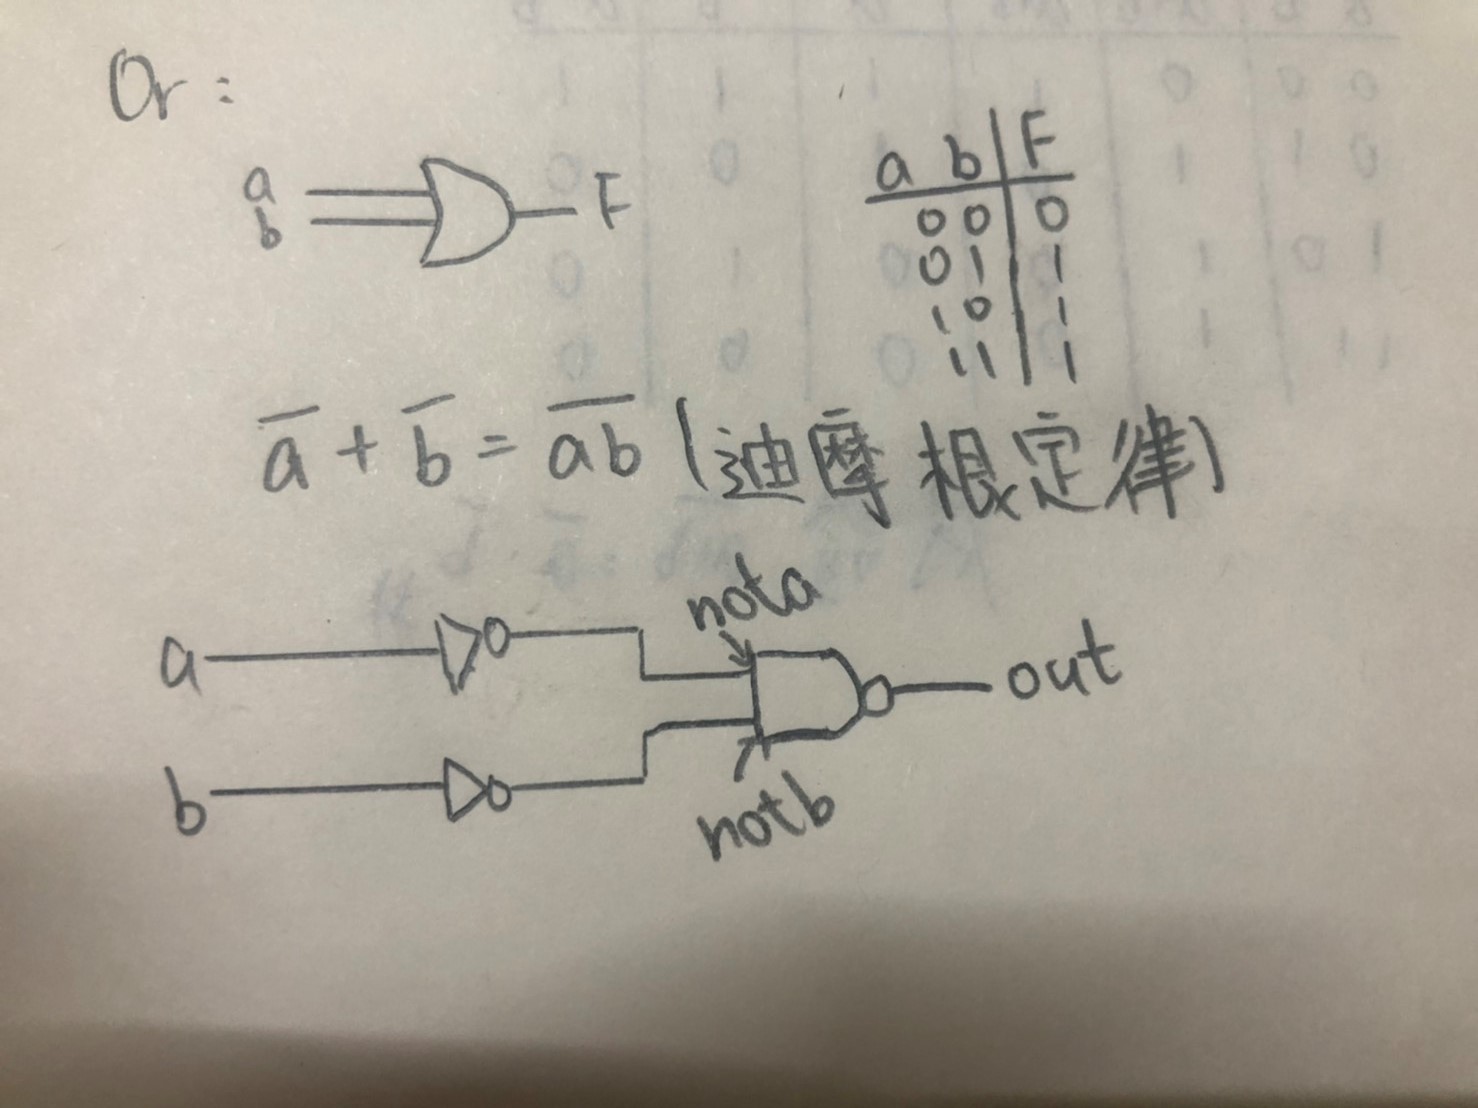 Or:
a
b
F
a b F
0 0 0
0 1 1
1 0 1
1 1 1
a̅ + b̅ = a̅b̅ (迪摩根定律)
nota
a
out
b
notb